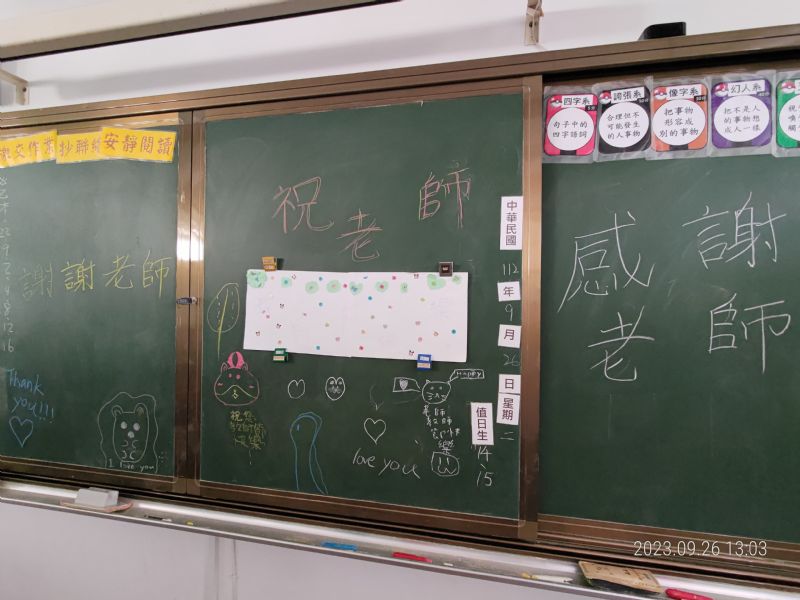 交作業
抄聯絡
安靜閱讀
謝謝老師
23
9
8
12
16
Thank
you!!!
I love you
祝老師
中華民國
112
年
9
月
26
日
星期
二
值日生
14
15
Happy
祝您
教師節
快樂
love you
四字系
句子中的
四字語詞
誇張系
合理但不
可能發生
的人事物
像字系
把事物
形容成
別的事物
幻人系
把不是人
的事物想
成人一樣
感謝
老師
2023.09.26 13:03